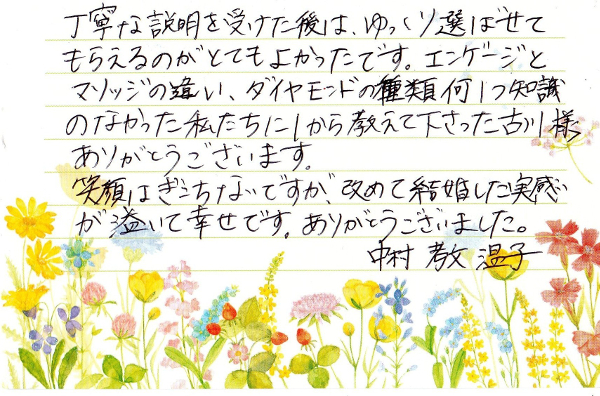 丁寧な説明を受けた後は、ゆっくり選ばせて
もらえるのがとてもよかったです。エンゲージと
マリッジの違い、ダイヤモンドの種類何1つ知識
のなかった私たちに1から教えて下さった古川様
ありがとうございます。
笑顔はぎこちないですが、改めて結婚した実感
が溢いて幸せです。ありがとうございました。
中村 教 温子